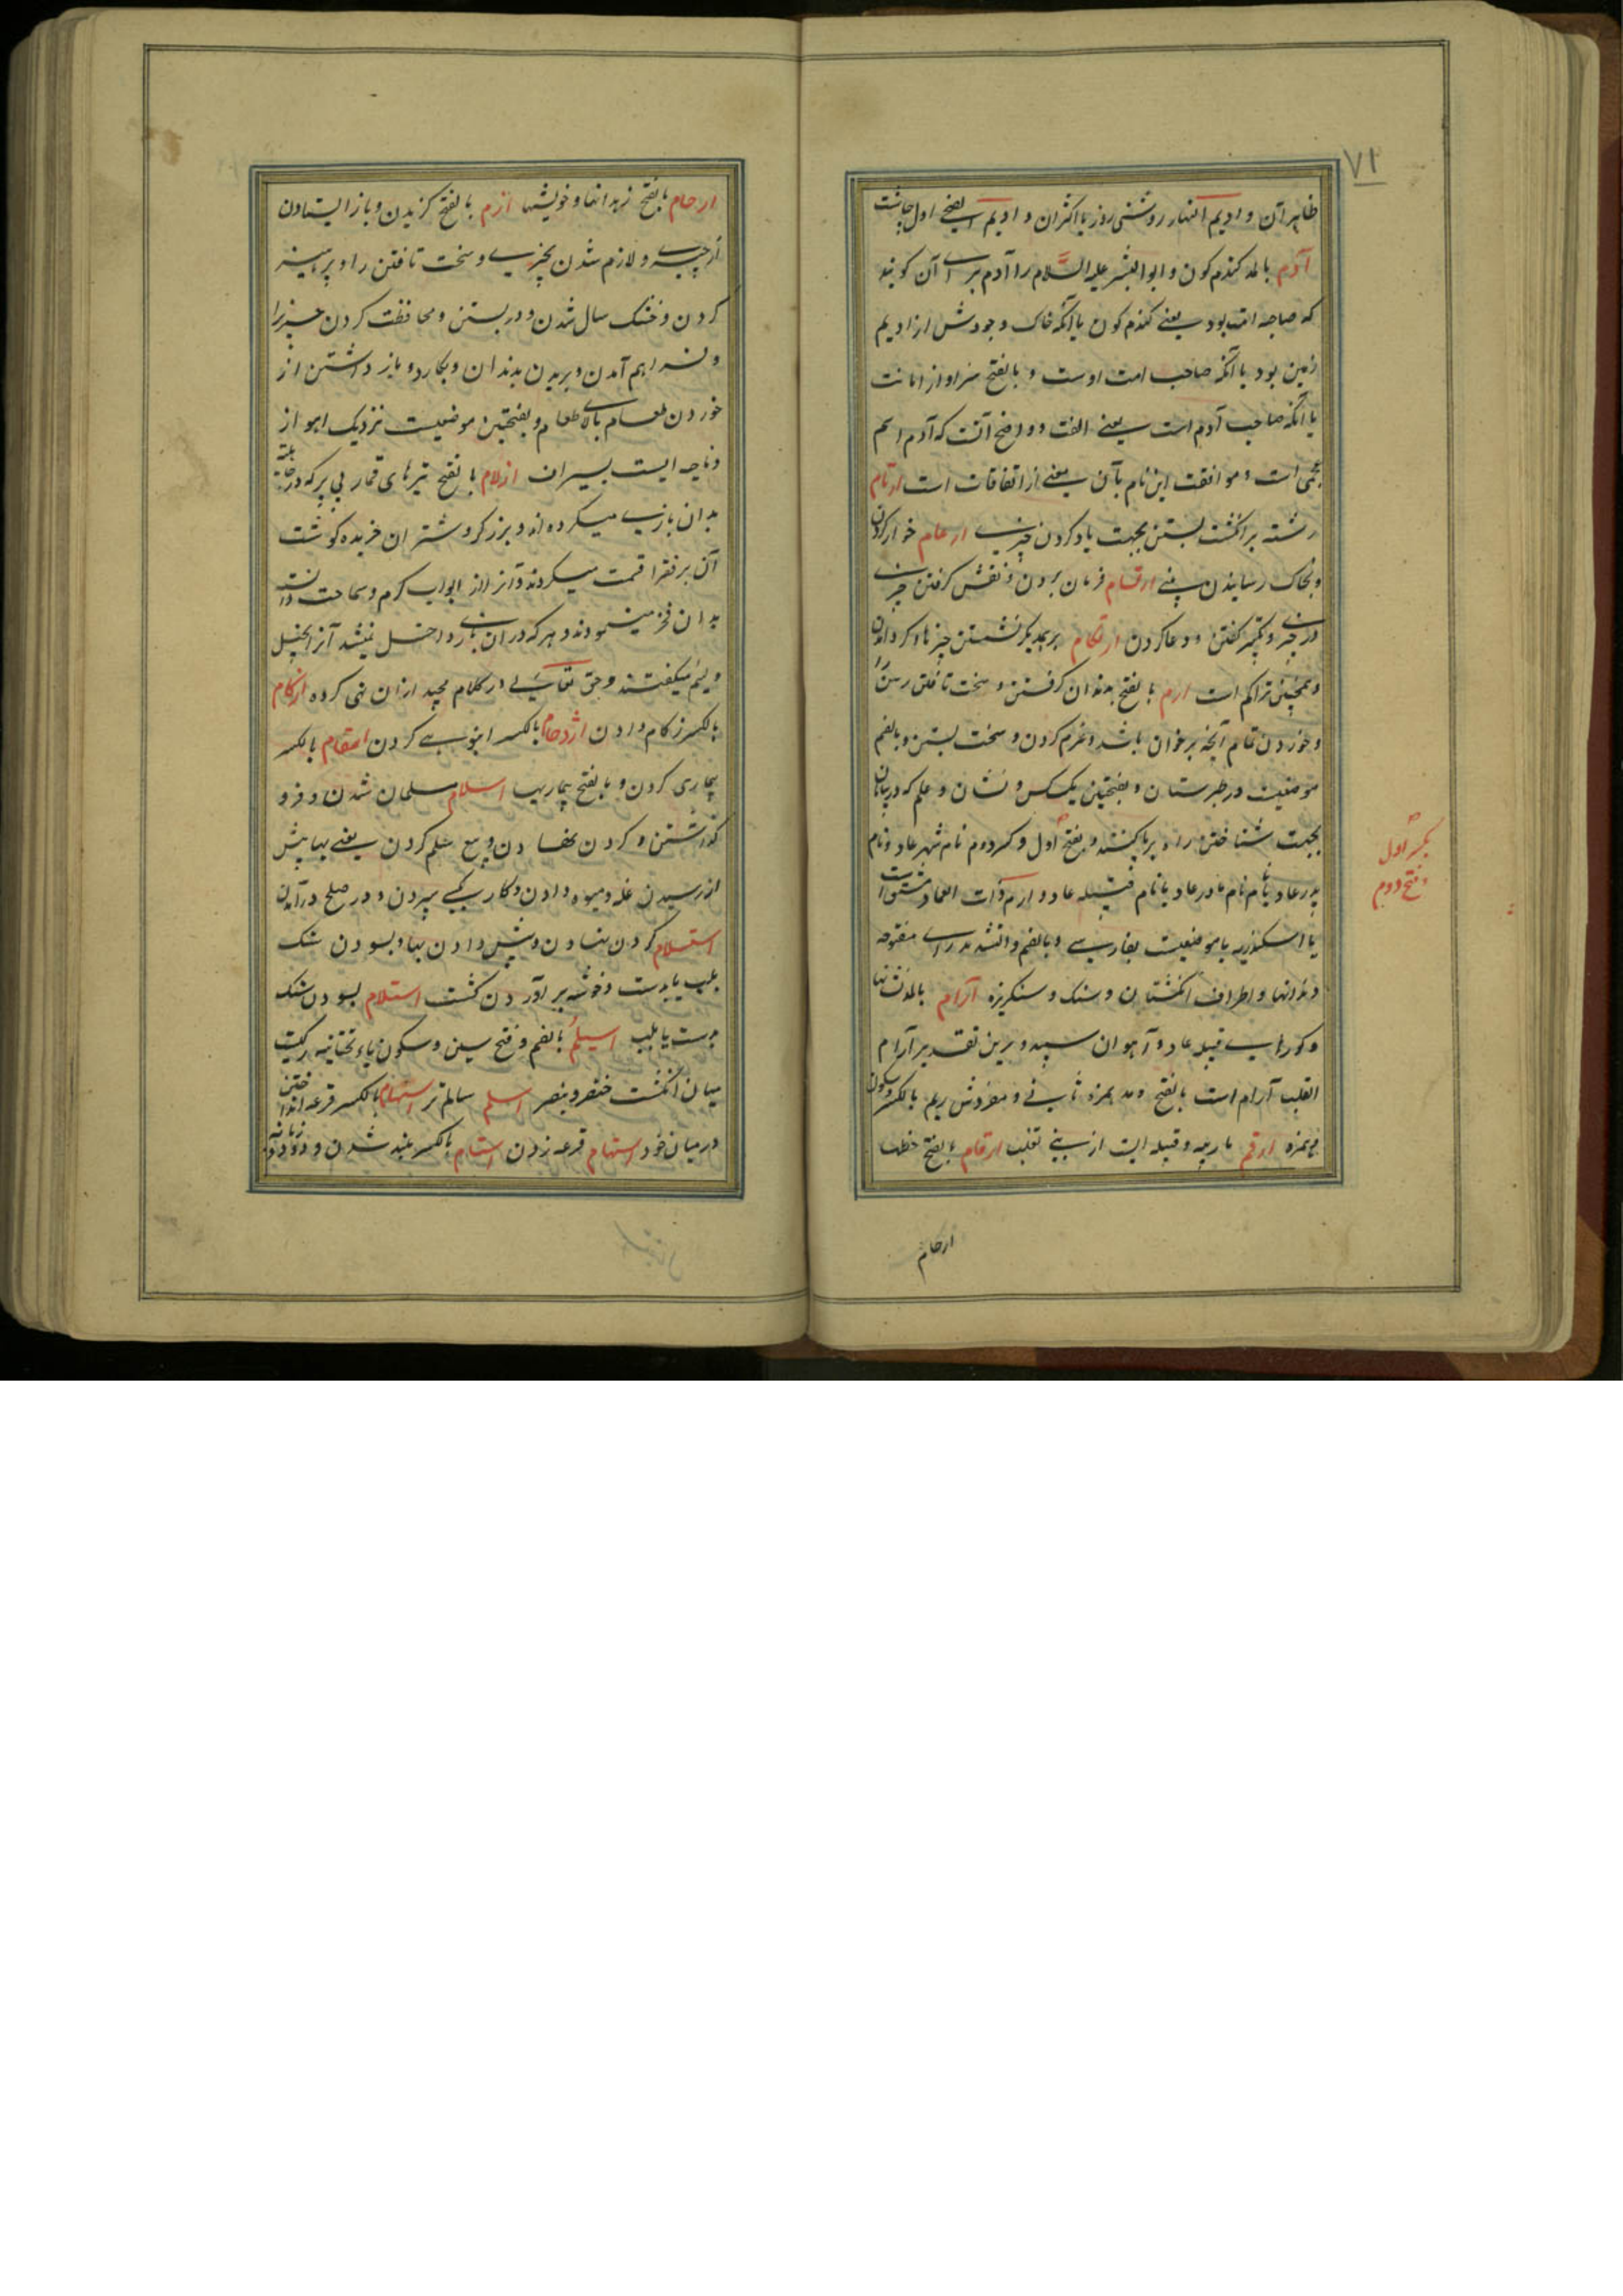 ۷۱
ظاهر آن و ادیم النهار روشنی روز یا اکثر آن و ادیم الضحی اول چاشت
آدم بالمد کندم کون و ابو البشر علیه السلام را آدم برای آن کویند
که صاحب ادمت بود یعنی کندم کون یا آنکه خاک وجودش از ادیم
زمین بود یا آنکه صاحب امت اوست و بالفتح سزاوار امانت
یا آنکه صاحب آدم است یعنی الفت و واضح آنست که آدم اسم
عجمی است و موافقت این نام بآن معنی از اتفاقات است ارتام
رشته بر انکشت بستن بجهت یاد کردن چیزی ارغام خوار کردن
و بخاک رسانیدن بینی ارتسام فرمان بردن و نقش کرفتن چیزی
در چیزی و تکبیر کفتن و دعا کردن ارتکام بر یکدیکر نشستن چیزها و کرد آمدن
و همچنین تراکم است ارم بالفتح بدندان کرفتن و سخت تافتن رسن را
و خوردن تمام آنچه بر خوان باشد و نرم کردن و سخت بستن و بالضم
موضعیست در طبرستان و بفتحتین یک کس و نشان و علم که در بیابان
بجهت شناختن راه بر پا کنند و بفتح اول و کسر دوم نام شهر عاد و نام
پدر عاد یا نام مادر عاد یا نام قبیله عاد و ارم ذات العماد دمشق است
یا اسکندریه یا موضعیست بفارس و بالضم و التشدید رای مفتوحه
دندانها و اطراف انکشتان و سنک و سنکریزه آرام بالمد نشانها
و کورهای قبیله عاد و آهوان سپید و برین تقدیر آرام
القلب آرام است بالفتح و مد همزه ثانی و مفردش ریم بالکسر و سکون
همزه ارقم مار پیسه و قبیله ایست از بنی تغلب ارقام بالفتح خطها
بکسر اول
و فتح دوم
ارحام
ارحام بالفتح زهدانها و خویشیها ازم بالفتح کزیدن و باز ایستادن
از چیزی و لازم شدن بچیزی و سخت تافتن را و پرهیز
کردن و خشک سال شدن و در بستن و محافظت کردن چیز را
و فراهم آمدن و بریدن بدندان و بکارد و باز داشتن از
خوردن طعام بالای طعام و بفتحتین موضعیست نزدیک اهواز
و ناحیه ایست بسیراف ازلام بالفتح تیرهای قمار بی پر که در جاهلیة
بدان بازی میکرده اند و بز کرو شتران خریده کوشت
آن بر فقرا قسمت میکردند و آنرا از ابواب کرم و سماحت دانسته
بدان فخر مینمودند و هر که در آن بازی داخل نمیشد آنرا بخیل
و لئیم میکفتند و حق تعالی در کلام مجید از آن نهی کرده ازکام
بالکسر زکام دادن ازدحام بالکسر انبوهی کردن اسقام بالکسر
بیماری کردن و بالفتح بیماریها اسلام مسلمان شدن و فرو
کذاشتن و کردن نهادن و بیع سلم کردن یعنی بها پیش
از رسیدن غله و میوه دادن و کار بکسی سپردن و در صلح درآمدن
استسلام کردن نهادن و پیش دادن بها و بسودن سنک
بلب یا بدست و خوشه بر آوردن کشت استلام بسودن سنک
بدست یا بلب اسیلم بالضم و فتح سین و سکون یاء تحتانیه رکیست
میان انکشت خنصر و بنصر اسلم سالمتر استهام بالکسر قرعه انداختن
در میان خود استهام قرعه زدن استنام بالکسر بلند شدن و